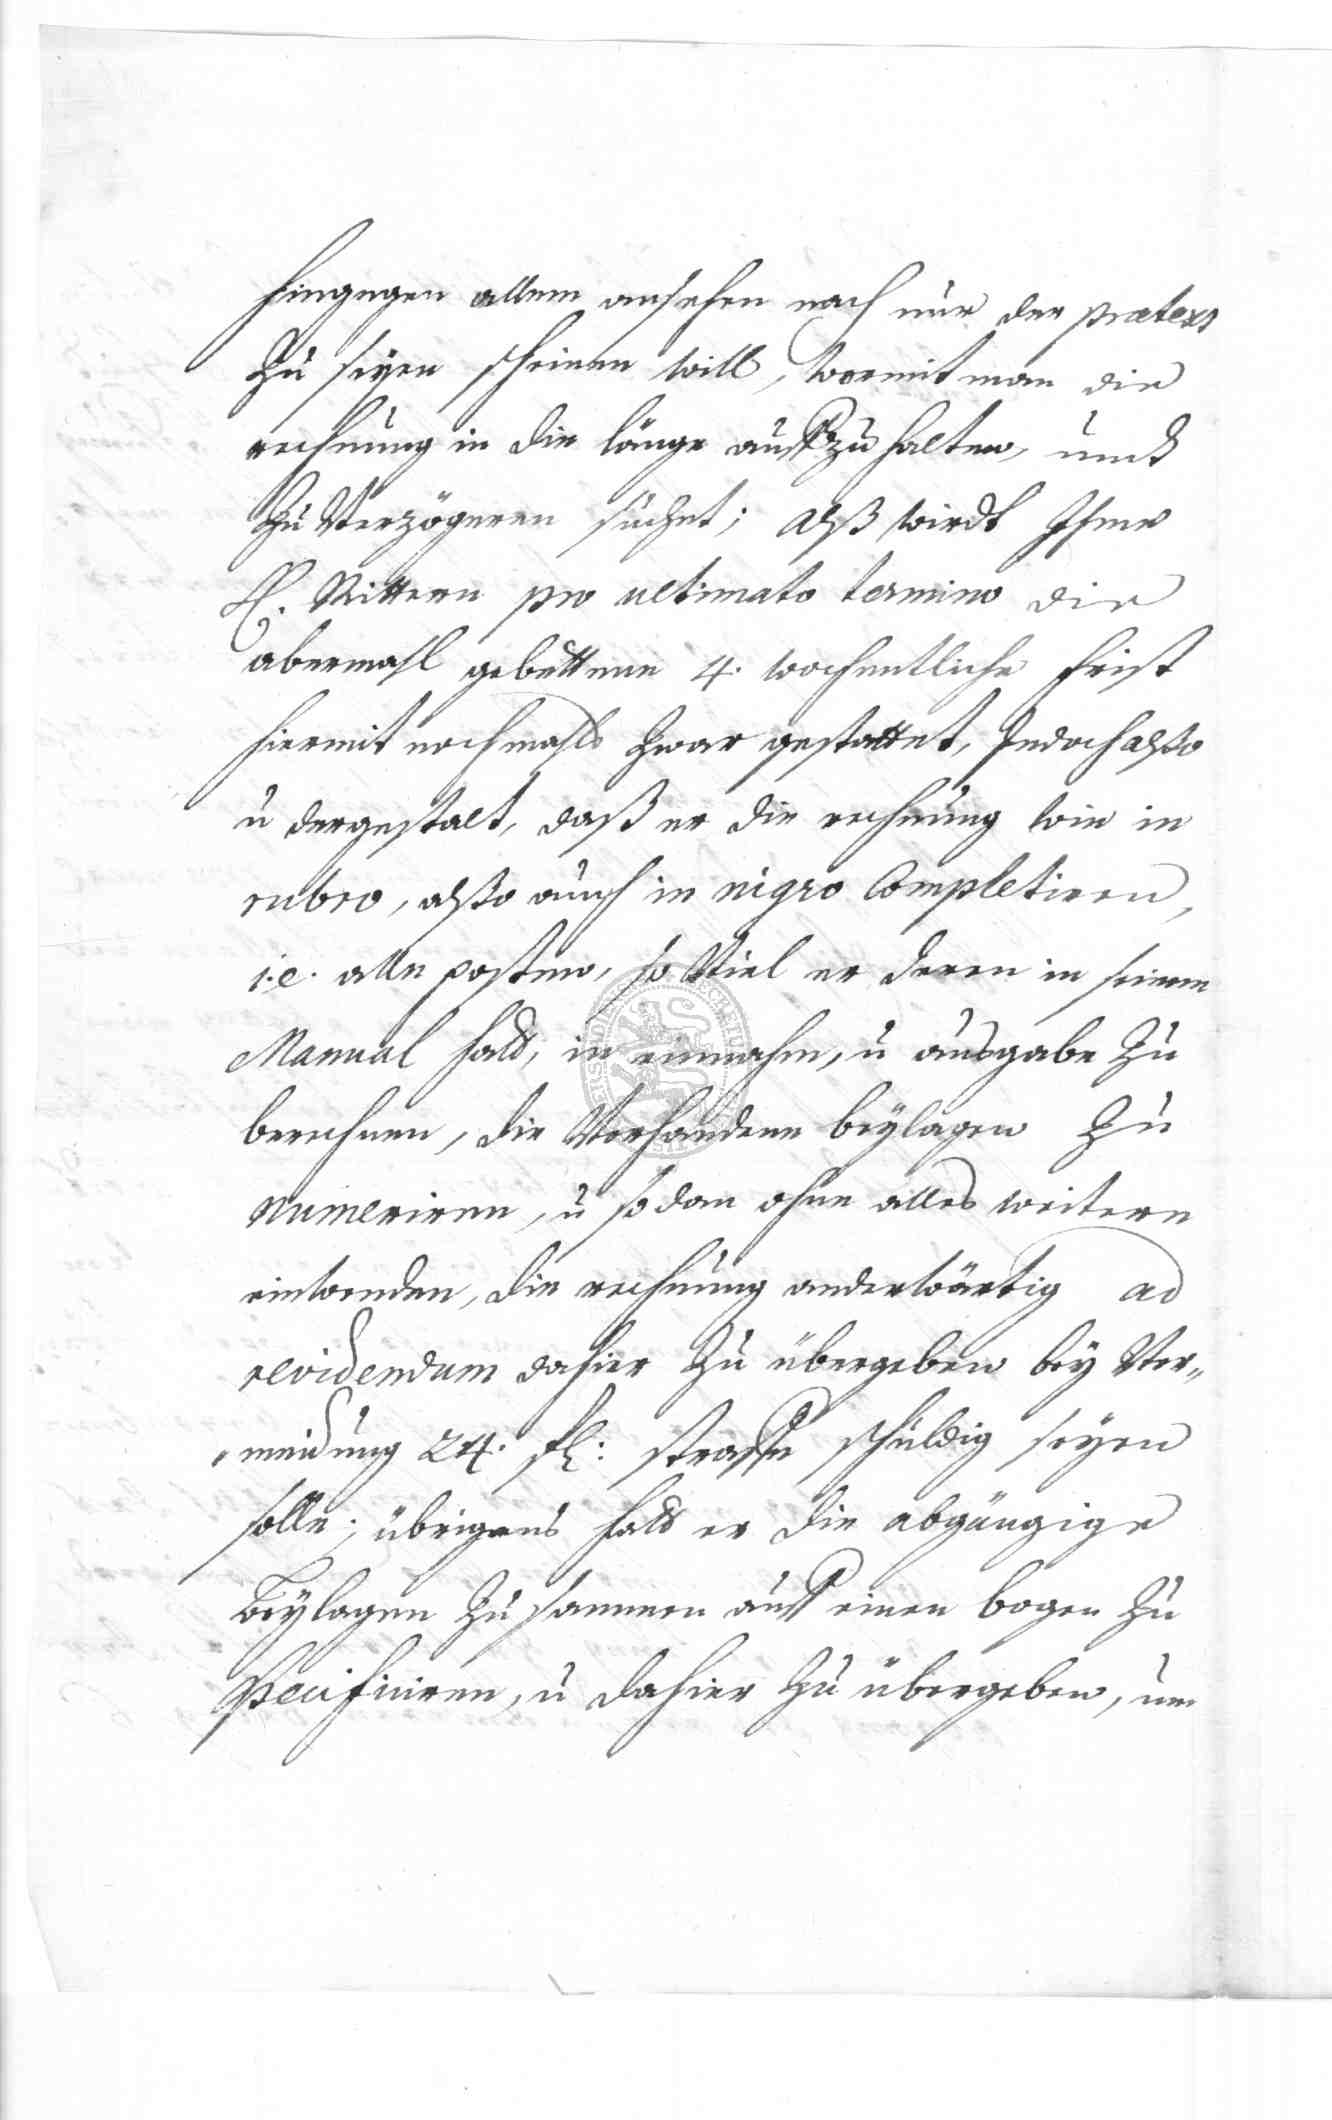 hingegen allem ansehen nach nur der prætext
zu seyen scheinen will, wormit man die
rechnung in die länge auffzuhalten, undt
zu Verzögeren suchet; alß wirdt Ihme
H. Rittern pro ultimato termino die
abermahl gebettene 4. wochentliche frist
hiermit nochmahls zwar gestattet, Jedoch alßo
u dergestalt, daß er die rechnung wie in
rubro, alßo auch in nigro Completiren,
i.e. alle posten, so Viel er deren in seinem
Manual hatt, in einnahm, u ausgabe zu
berechnen, die Vorhandene beylagen zu
numeriren, u sodan ohne alles weitere
einwenden, die rechnung anderwärtig ad
revidendum dahier zu übergeben bey Ver„
„meidung 24. fl: straffe schuldig seyen
solle; übrigens hatt er die abgängige
Beylagen zusammen auff einen bogen zu
specificiren, u dahier zu übergeben, um